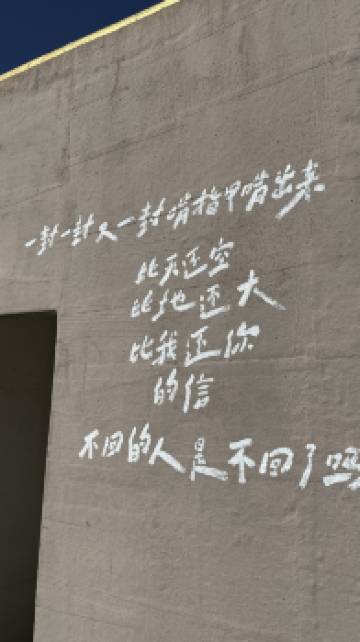 一封一封又一封啃指甲啃出来
比天还空
比地还大
比我还你
的信
不回的人是不回了吗